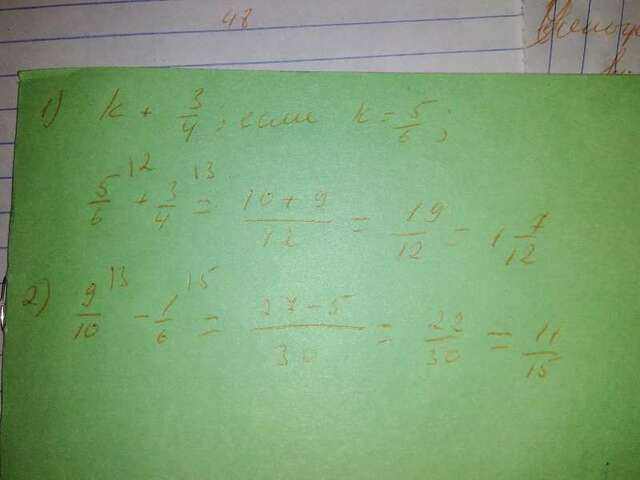 48
1) k + 3/4; если k = 5/6;
5/6 |2 + 3/4 |3 = 10 + 9/12 = 19/12 = 1 7/12
2) 9/10 |3 - 1/6 |5 = 27 - 5/30 = 22/30 = 11/15